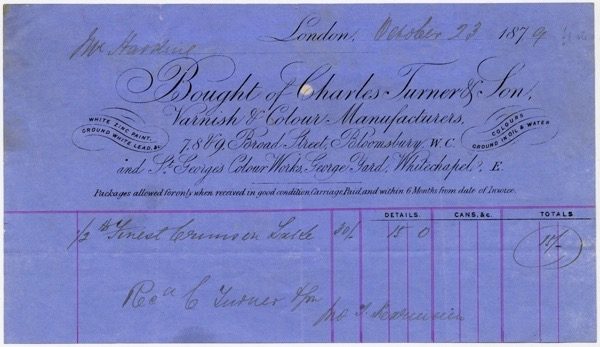 London, October 23 1879
Mr Harding
Bought of Charles Turner & Son,
Varnish & Colour Manufacturers,
WHITE ZINC PAINT,
GROUND WHITE LEAD, &c.
7, 8 & 9, Broad Street, Bloomsbury, W.C.
COLOURS
GROUND IN OIL & WATER
and St. Georges Colour Works, George Yard, Whitechapel, E.
Packages allowed for only when received in good condition, Carriage Paid, and within 6 Months from date of Invoice.
DETAILS. CANS, &c. TOTALS
1/2 lb Finest Crimson Lake 30/- 15 0 15/-
Recd C Turner & Son